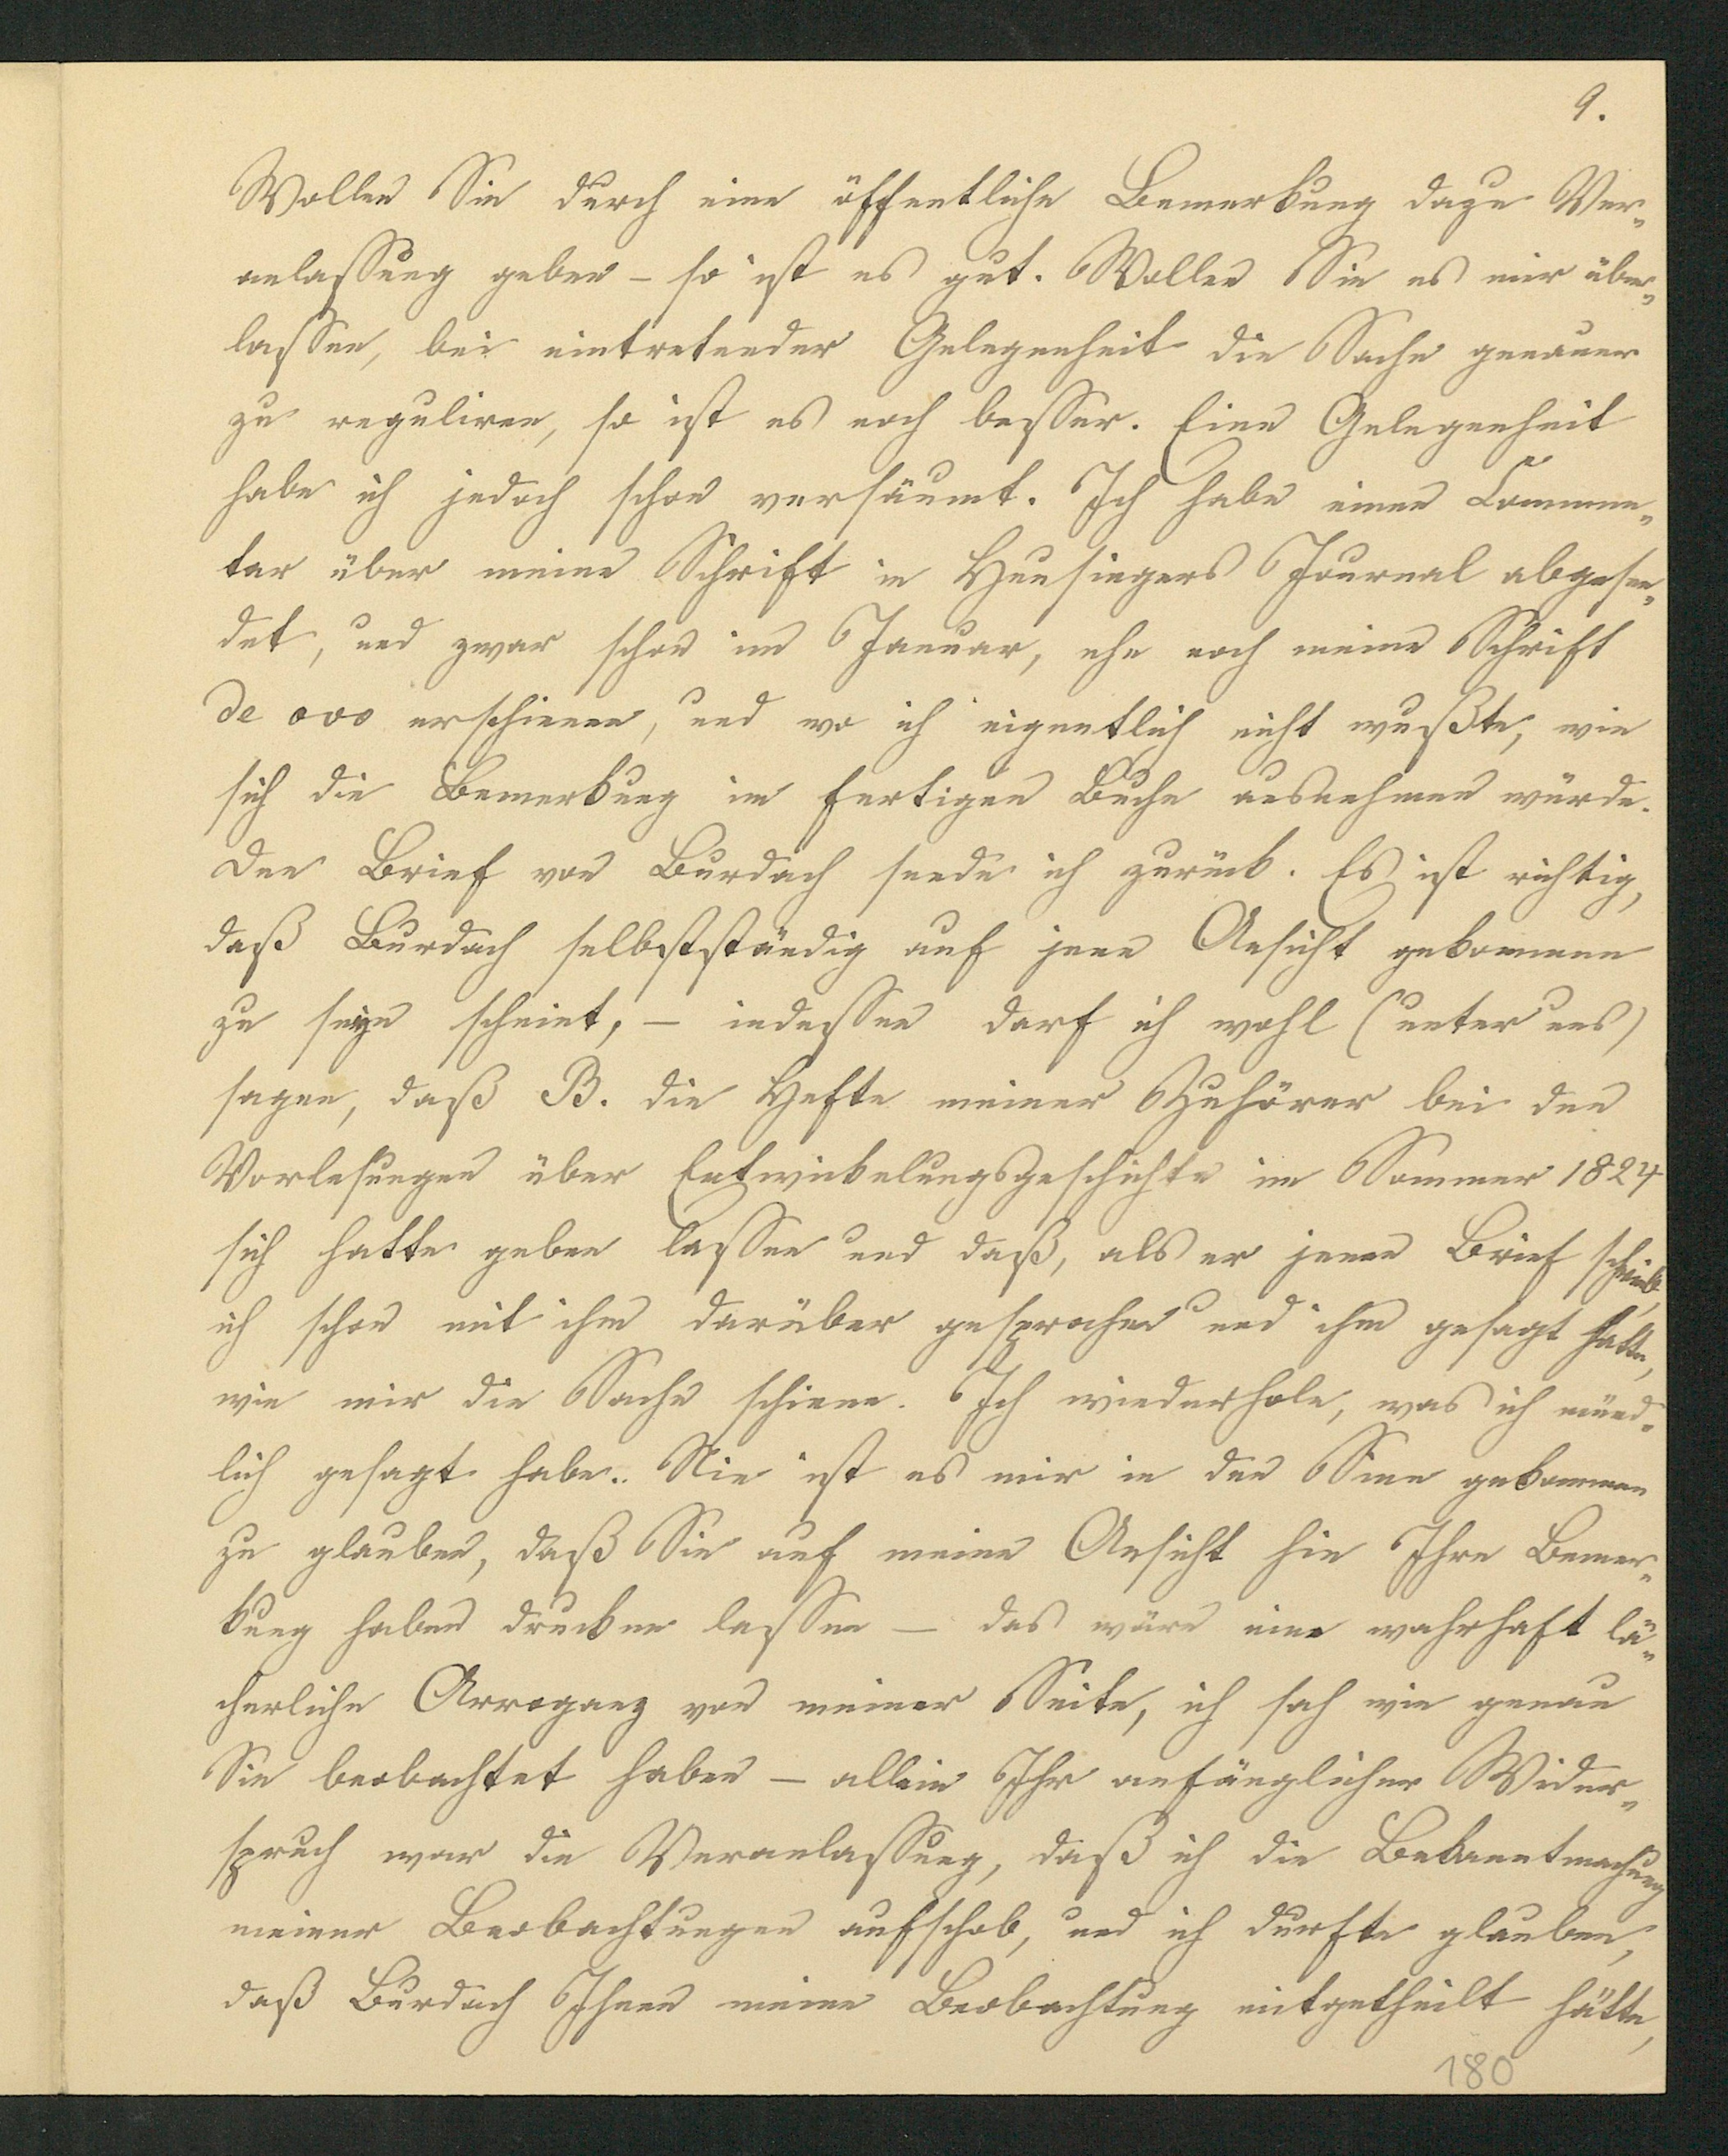 9.
Wollen Sie durch eine öffentliche Bemerkung dazu Ver-
anlassung geben – so ist es gut. Wollen Sie es mir über-
lassen, bei eintretender Gelegenheit die Sache genauer
zu reguliren, so ist es noch besser. Eine Gelegenheit
habe ich jedoch schon versäumt. Ich habe einen Commen-
tar über meine Schrift in Heusingers Journal abgesen-
det, und zwar schon im Januar, ehe noch meine Schrift
de ovo erschienen, und wo ich eigentlich nicht wußte, wie
sich die Bemerkung im fertigen Buche ausnehmen würde.
Den Brief von Burdach sende ich zurück. Es ist richtig,
daß Burdach selbstständig auf jene Ansicht gekommen
zu seyn scheint, – indessen darf ich wohl (unter uns)
sagen, daß B. die Hefte meiner Zuhörer bei den
Vorlesungen über Entwickelungsgeschichte im Sommer 1824
sich hatte geben lassen und daß, als er jenen Brief schrieb,
ich schon mit ihm darüber gesprochen und ihm gesagt hatte,
wie mir die Sache schiene. Ich wiederhole, was ich münd-
lich gesagt habe. Nie ist es mir in den Sinn gekommen
zu glauben, daß Sie auf meine Ansicht hin Ihre Bemer-
kung haben drucken lassen – das wäre eine wahrhaft lä-
cherliche Arroganz von meiner Seite, ich sah wie genau
Sie beobachtet haben – allein Ihr anfänglicher Wider-
spruch war die Veranlassung, daß ich die Bekanntmachung
meiner Beobachtungen aufschob, und ich durfte glauben,
daß Burdach Ihnen meine Beobachtung mitgetheilt hätte,
180